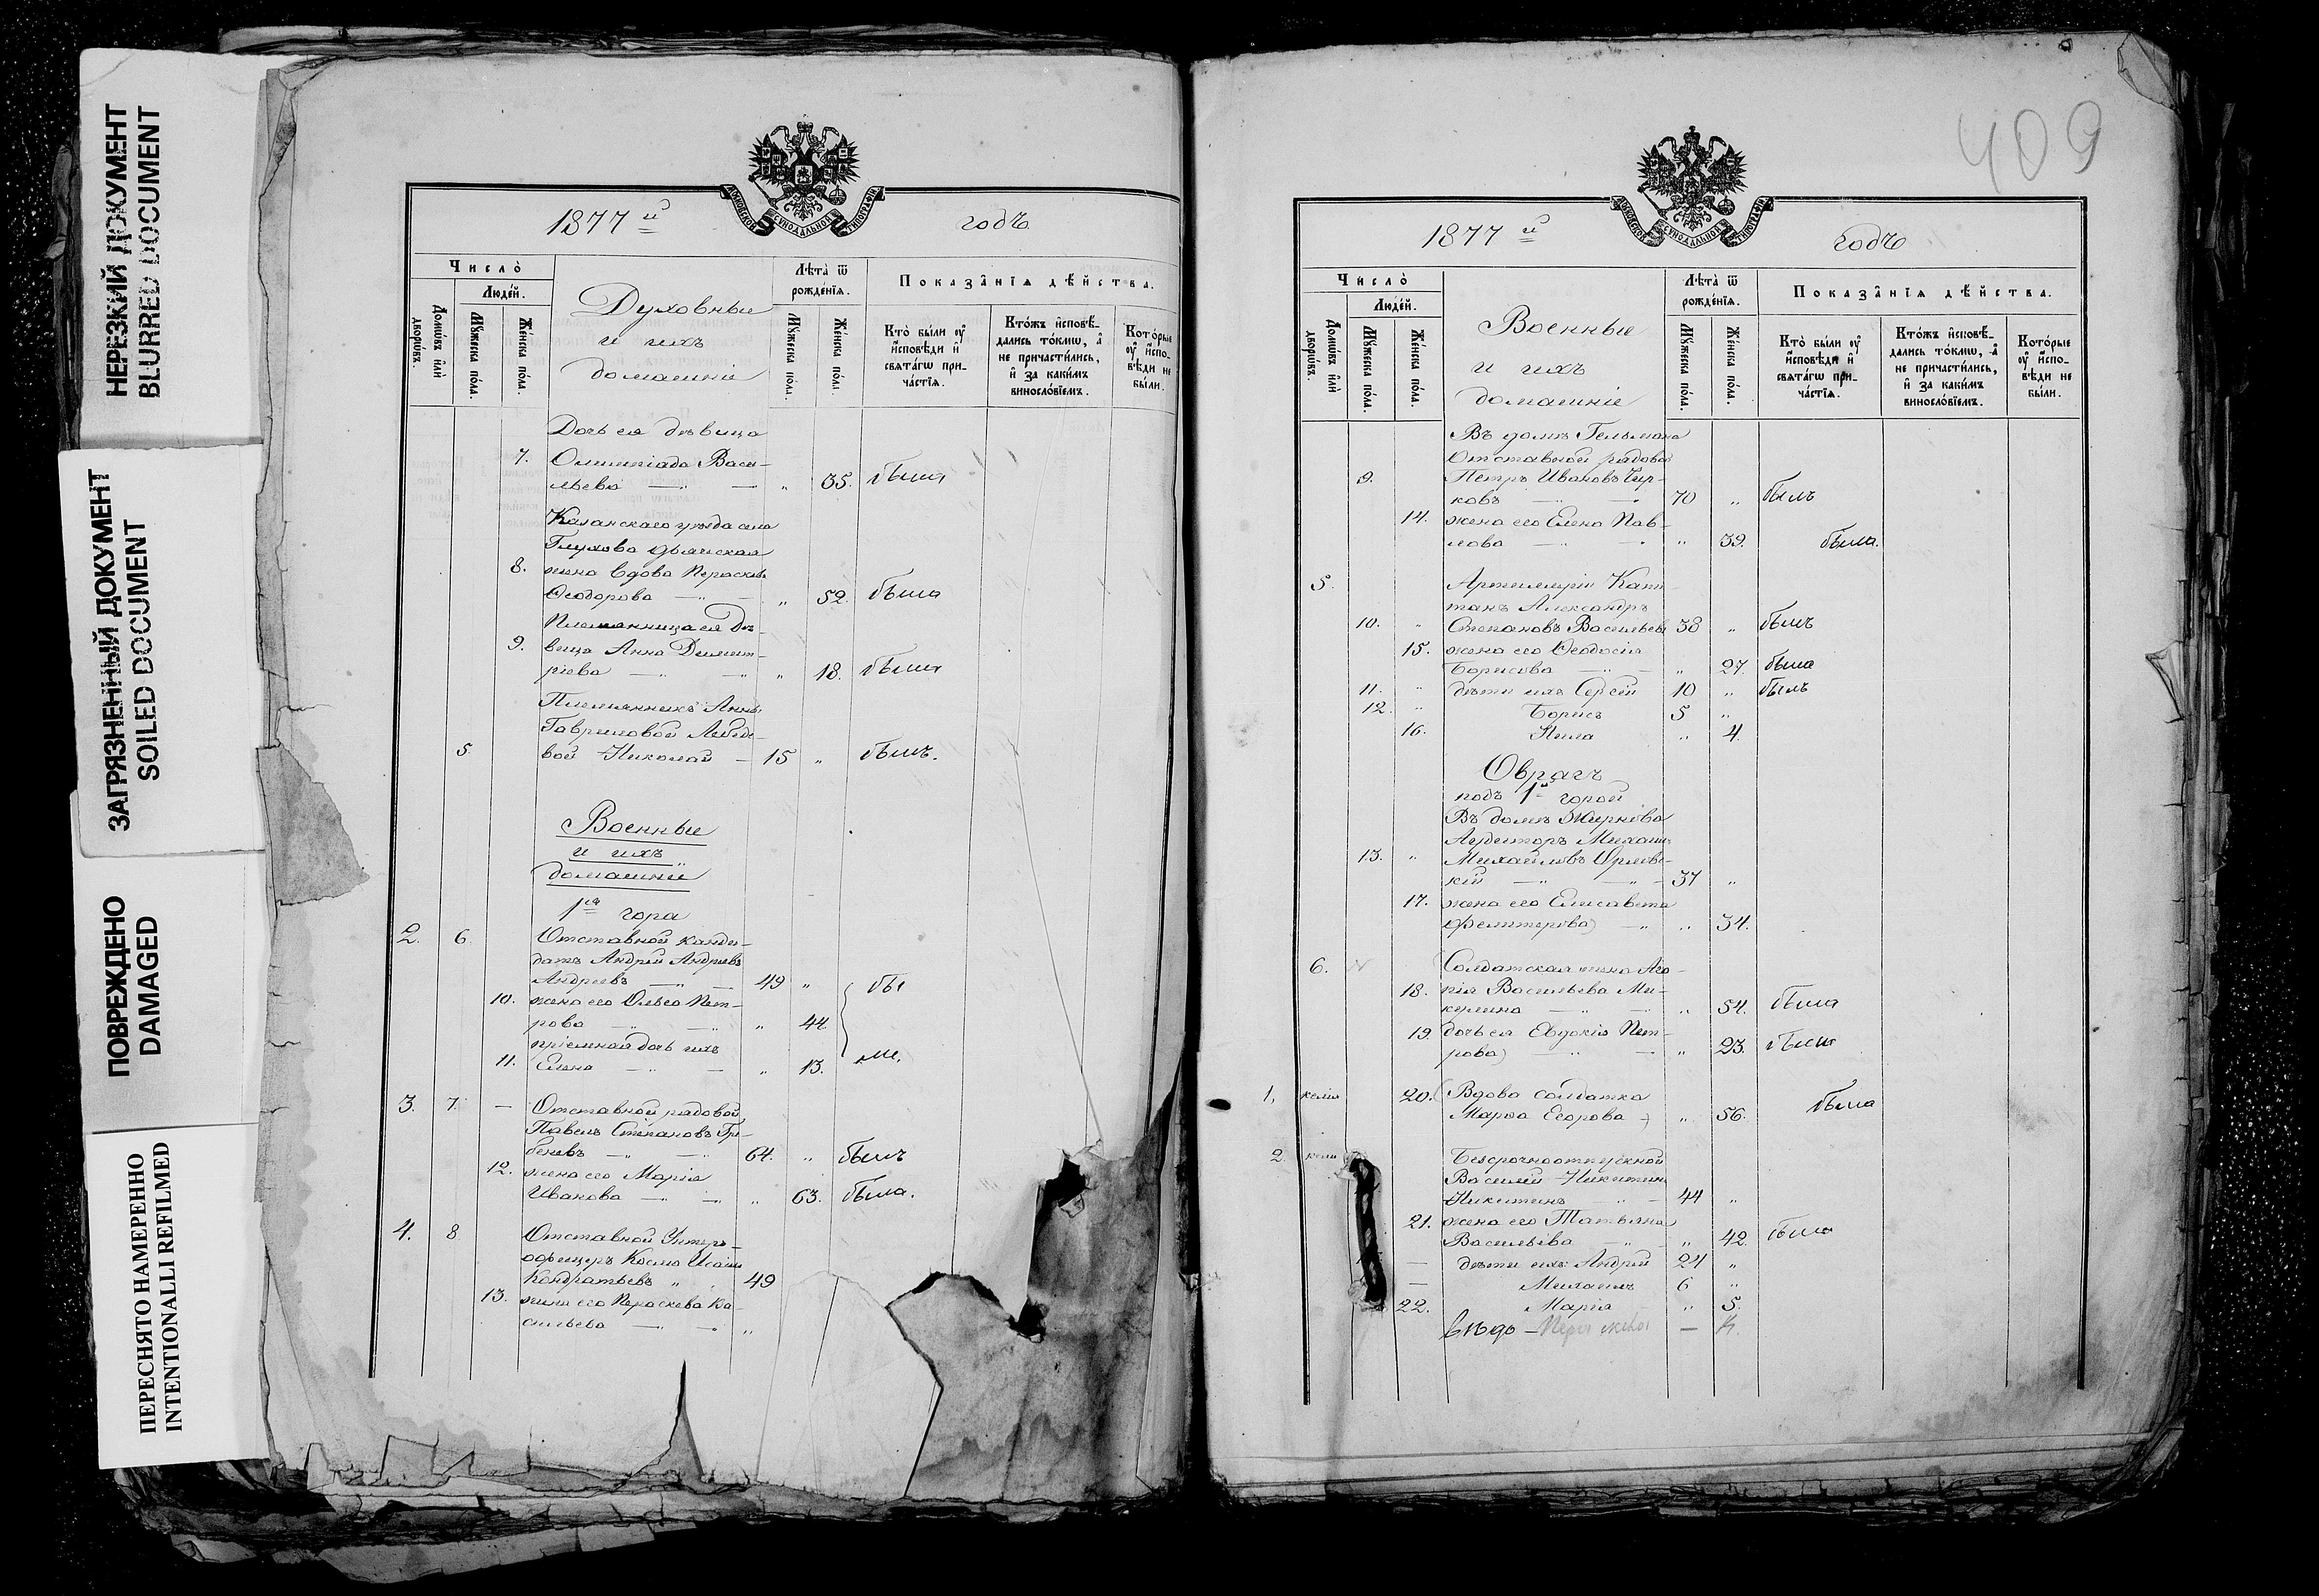 НЕРЕЗКИЙ ДОКУМЕНТ
BLURRED DOCUMENT
ЗАГРЯЗНЕННЫЙ ДОКУМЕНТ
SOILED DOCUMENT
ПОВРЕЖДЕНО
DAMAGED
ПЕРЕСНЯТО НАМЕРЕННО
INTENTIONALLI REFILMED
МОСКОВСКОЙ СУНОДАЛЬНОЙ ТИПОГРАФІИ
1877 й годъ
Число̀
Домѡ́въ и҆лѝ дворѡ́въ.
Люде́й.
Мꙋ́жеска по́ла.
Же́нска по́ла.
Духовные
и ихъ
домашніе
Лѣта̀ ѿ рожде́нїѧ.
Мꙋ́жеска по́ла.
Же́нска по́ла.
Показа̂нїѧ дѣ́йства.
Кто̀ бы́ли оу҆ и҆сповѣ́ди и҆ свѧта́гѡ прича́стїѧ.
Кто́жъ и҆сповѣ́дались то́кмѡ, а҆ не причасти́лись, и҆ за каки́мъ виносло́вїемъ.
Кото́рые оу҆ и҆сповѣ́ди не бы́ли.
Дочь ея дѣвица
7. Олимпіада Васи-
льева — „ — „ 35. была
Казанскаго уѣзда села
Глухова дьяческая
8. жена вдова Параскева
Ѳеодорова — „ — „ 52. была
Племянница ея дѣ-
9. вица Анна Димит-
ріева — „ — „ 18. была
Племянникъ Анны
Гавриловой Лебеде-
5. вой Николай — 15 „ былъ.
Военные
и ихъ
домашніе
1ая гора
2. 6. Отставной канди-
датъ Андрей Андреевъ
Андреевъ — „ — 49 „ бы
10. жена его Ольга Пет-
рова — „ — „ 44.
пріемная дочь ихъ
11. Елена — „ — „ 13. ли.
3. 7. — Отставной рядовой
Павелъ Степановъ Гре-
беневъ — „ — 64. „ былъ
12. жена его Марія
Иванова — „ — „ 63. была.
4. 8. Отставной Унтеръ-
офицеръ Косма Исаевъ
Кондратьевъ „ 49
13. жена его Параскева Ва-
сильева — „ — „
409
МОСКОВСКОЙ СУНОДАЛЬНОЙ ТИПОГРАФІИ
1877 й годъ
Число̀
Домѡ́въ и҆лѝ дворѡ́въ.
Люде́й.
Мꙋ́жеска по́ла.
Же́нска по́ла.
Военные
и ихъ
домашніе
Лѣта̀ ѿ рожде́нїѧ.
Мꙋ́жеска по́ла.
Же́нска по́ла.
Показа̂нїѧ дѣ́йства.
Кто̀ бы́ли оу҆ и҆сповѣ́ди и҆ свѧта́гѡ прича́стїѧ.
Кто́жъ и҆сповѣ́дались то́кмѡ, а҆ не причасти́лись, и҆ за каки́мъ виносло́вїемъ.
Кото́рые оу҆ и҆сповѣ́ди не бы́ли.
Въ домѣ Гельмана
Отставной рядовой
9. Петръ Ивановъ Чир-
ковъ — „ — 70 „ былъ
14. жена его Елена Пав-
лова — „ — „ 39. была.
5. Артиллеріи Капи-
танъ Александръ
10. „ Степановъ Васильевъ 38 „ былъ
15. жена его Ѳеодосія
Борисова — „ — „ 27. была
11. „ дѣти ихъ Сергій 10 „ былъ
12. „ Борисъ 5 „
16. „ 4.
Оврагъ
подъ 1й горой
Въ домѣ Жиркова
Аудиторъ Михаилъ
13. „ Михайловъ Орлов-
кій — „ — „ — 37 „
17. жена его Елисавета
— „ „ 34.
6. Солдатская жена Ага-
18. пія Васильева Ми-
— „ — „ 54. была
19. дочь ея Евдокія Пет-
рова — „ — „ 23. была
1, келія 20. Вдова солдатка
Марѳа Егорова — „ 56. была
2. келія Безсрочноотпускной
Василій Никитинъ
Никитинъ — „ — 44 „
21. жена его Татьяна
Васильева — „ — „ 42. была
— дѣти ихъ: Андрей 24 „
— Михаилъ 6 „
22. Марія „ 5.